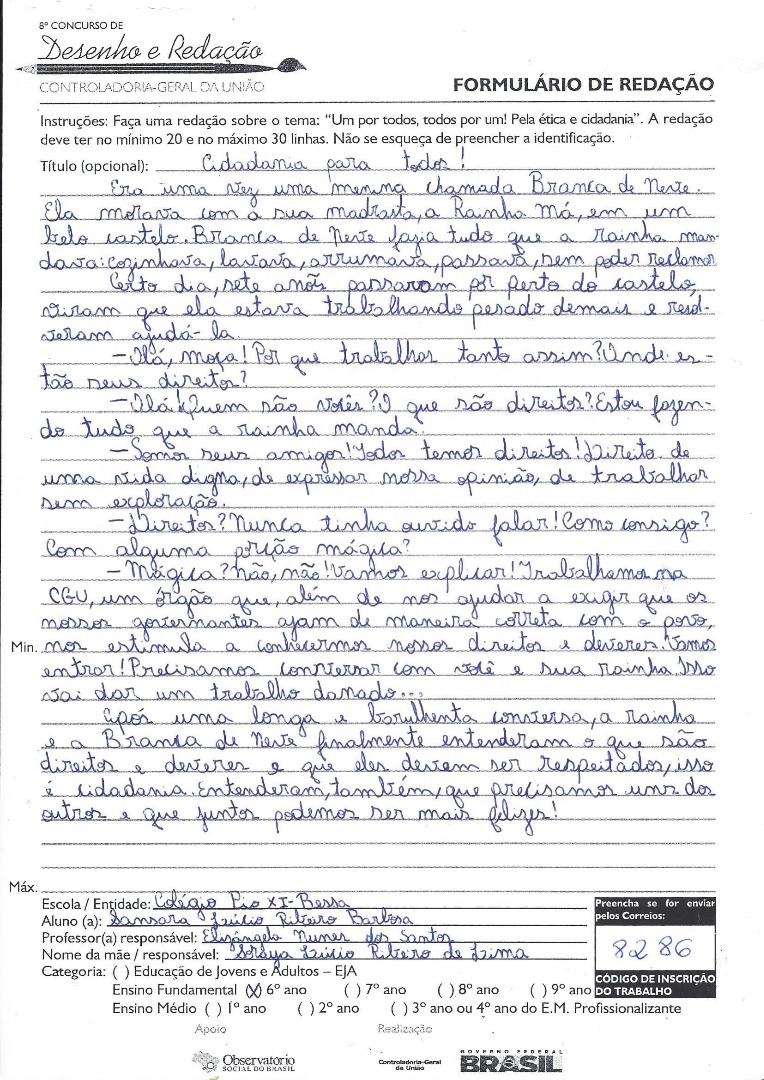 8º CONCURSO DE
Desenho e Redação
CONTROLADORIA-GERAL DA UNIÃO
FORMULÁRIO DE REDAÇÃO
Instruções: Faça uma redação sobre o tema: "Um por todos, todos por um! Pela ética e cidadania". A redação
deve ter no mínimo 20 e no máximo 30 linhas. Não se esqueça de preencher a identificação.
Título (opcional): Cidadania para todos!
Era uma vez uma menina chamada Branca de Neve.
Ela morava com a sua madrasta, a Rainha Má, em um
belo castelo. Branca de Neve fazia tudo que a rainha man-
dava: cozinhava, lavava, arrumava, passava, sem poder reclamar
Certo dia, sete anõs passaram por perto do castelo,
viram que ela estava trabalhando pesado demais e resol-
veram ajudá-la.
– Olá, moça! Por que trabalhas tanto assim? Onde es-
tão seus direitos?
– Olá! Quem são vocês? O que são direitos? Estou fazen-
do tudo que a rainha manda.
– Somos seus amigos! Todos temos direitos! Direito de
uma vida digna, de expressar nossa opinião, de trabalhar
sem exploração.
– Direitos? Nunca tinha ouvido falar! Como consigo?
Com alguma porção mágica?
– Mágica? Não, não! Vamos explicar! Trabalhamos na
CGU, um órgão que, além de nos ajudar a exigir que os
nossos governantes ajam de maneira correta com o povo,
Min. nos estimula a conhecermos nossos direitos e deveres. Vamos
entrar! Precisamos conversar com você e sua rainha. Isso
vai dar um trabalho danado...
Após uma longa e barulhenta conversa, a rainha
e a Branca de Neve finalmente entenderam o que são
direitos e deveres e que eles devem ser respeitados, isso
é cidadania. Entenderam, também, que precisamos uns dos
outros e que juntos podemos ser mais felizes!
Máx.
Escola / Entidade: Colégio Pio XI-Bessa
Aluno (a): Sansara Lúcio Ribeiro Barbosa
Professor(a) responsável: Elizângela Nunes dos Santos
Nome da mãe / responsável: Soraya Lúcio Ribeiro de Lima
Categoria: ( ) Educação de Jovens e Adultos – EJA
Ensino Fundamental (X) 6º ano ( ) 7º ano ( ) 8º ano ( ) 9º ano
Ensino Médio ( ) 1º ano ( ) 2º ano ( ) 3º ano ou 4º ano do E.M. Profissionalizante
Preencha se for enviar
pelos Correios:
8286
CÓDIGO DE INSCRIÇÃO
DO TRABALHO
Apoio
Realização
Observatório
SOCIAL DO BRASIL
Controladoria-Geral
da União
GOVERNO FEDERAL
BRASIL